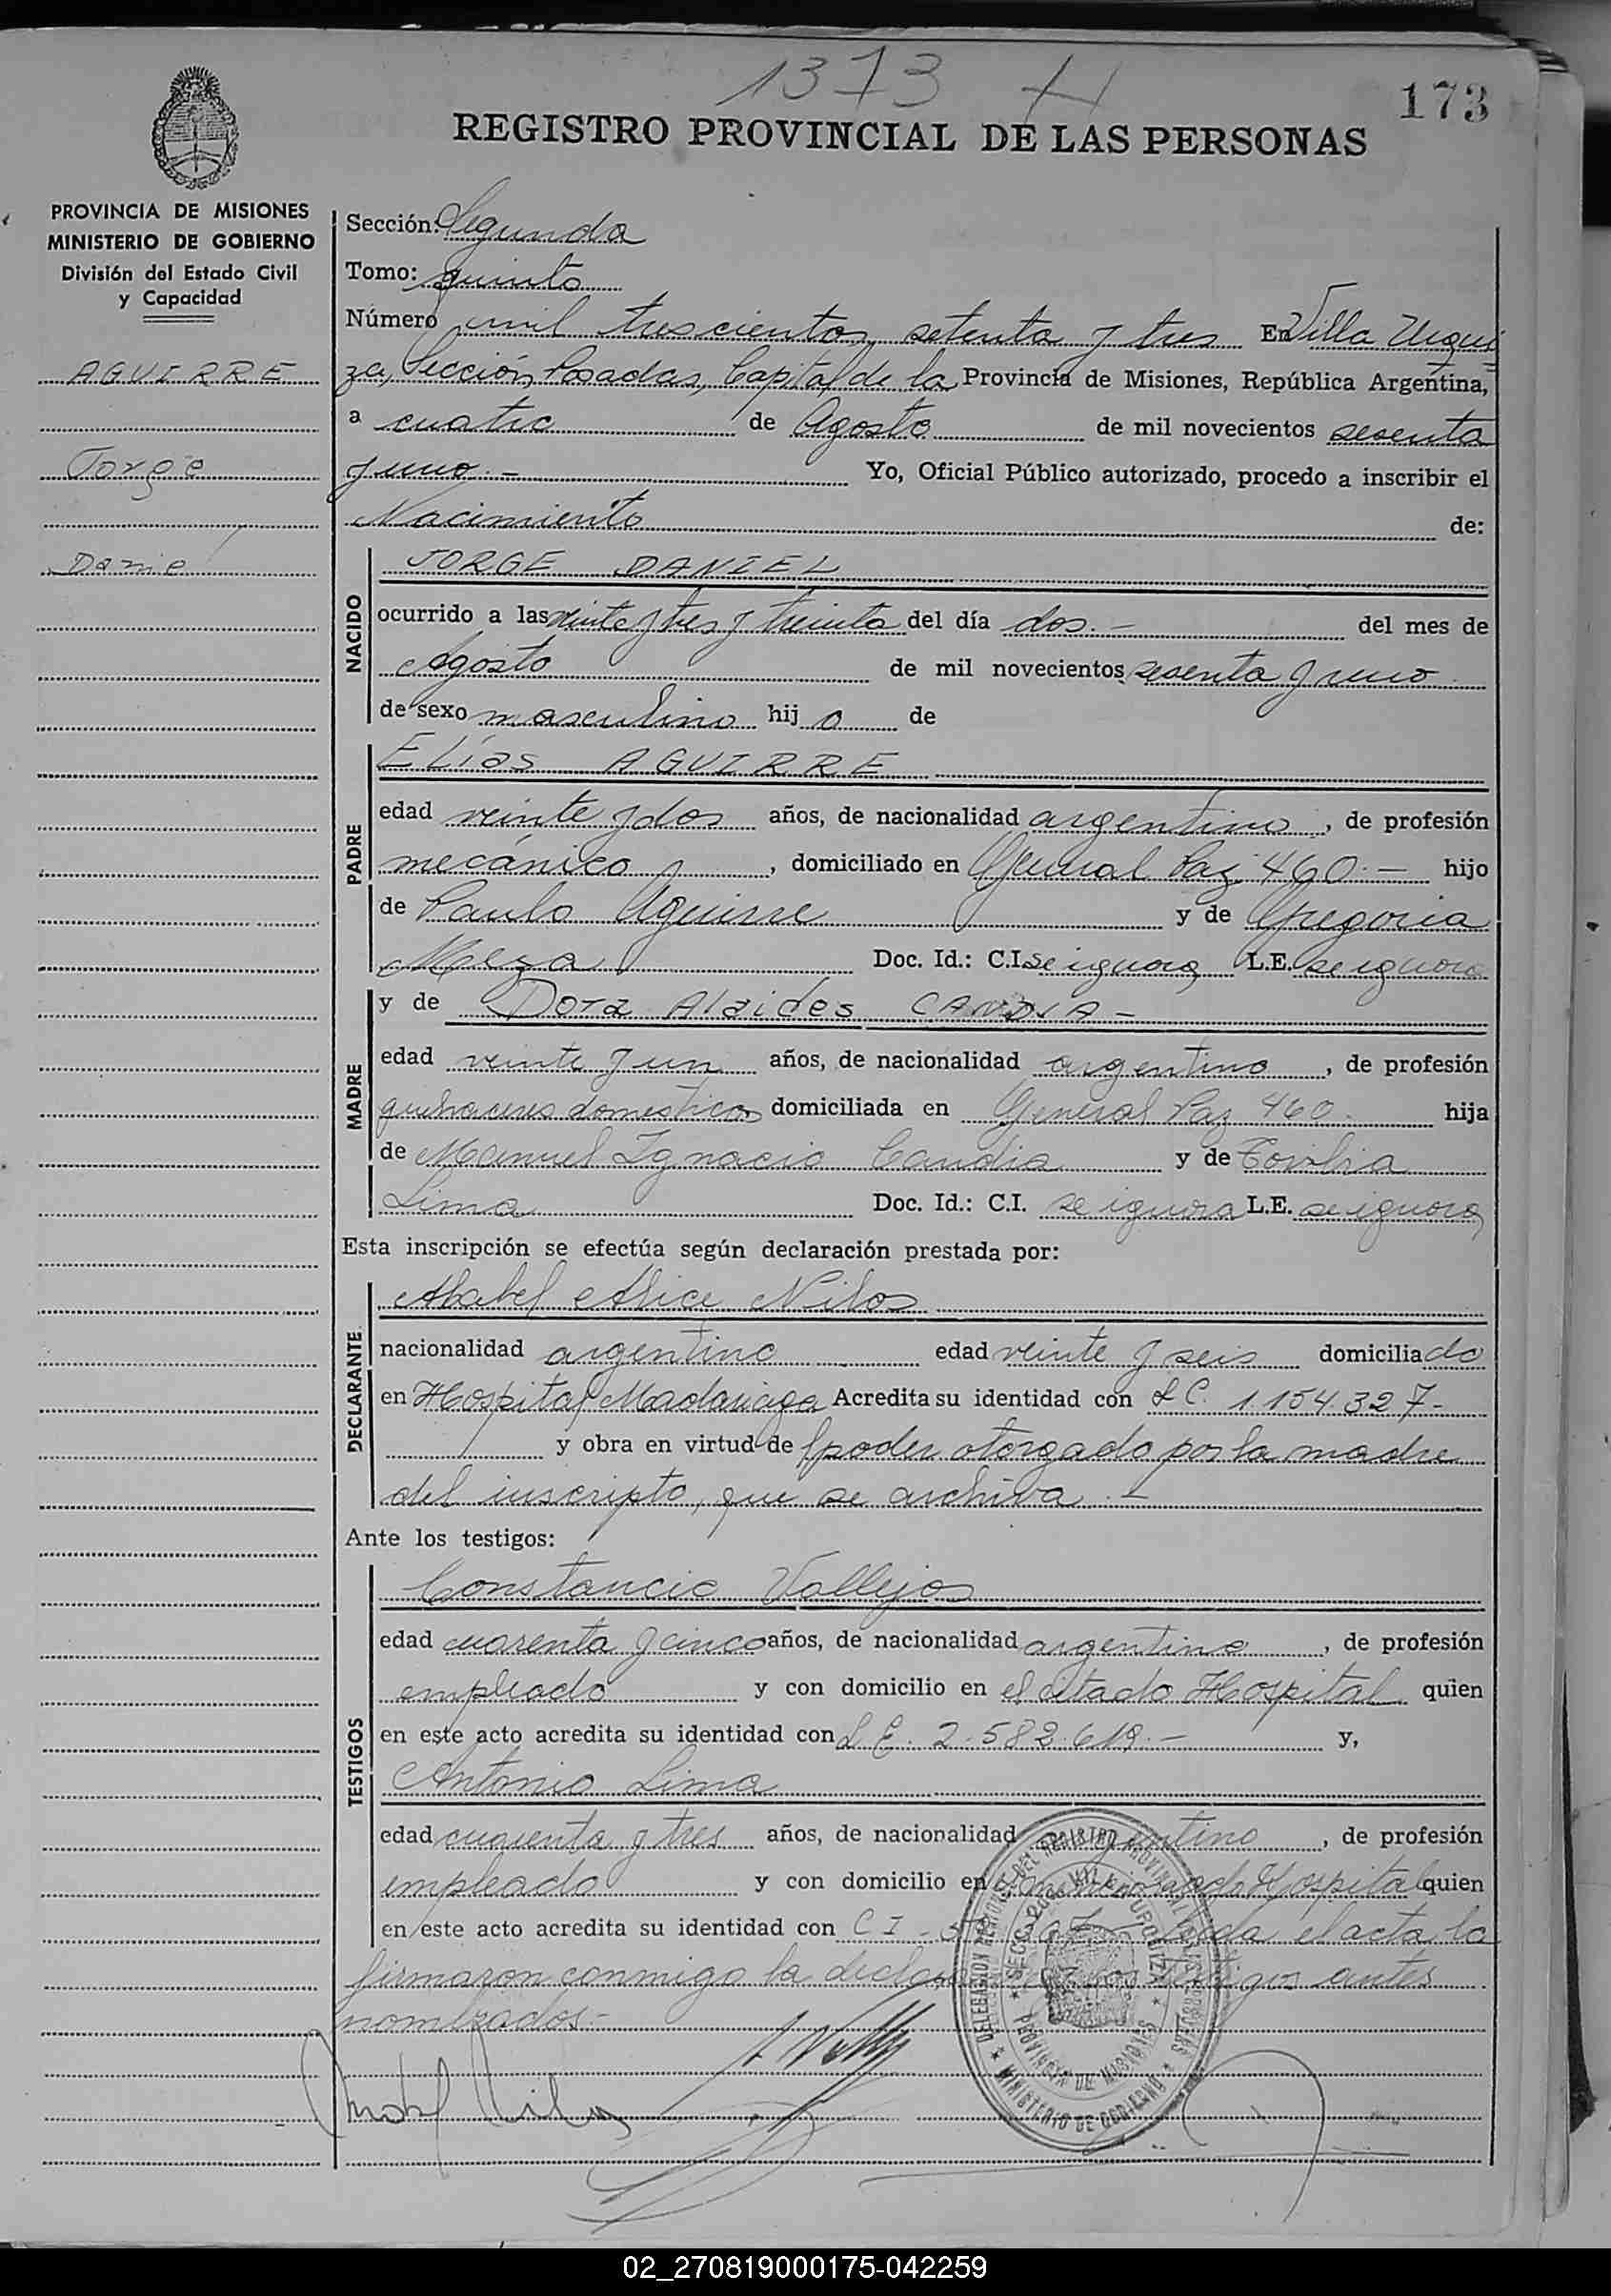 1373
173
REGISTRO PROVINCIAL DE LAS PERSONAS
PROVINCIA DE MISIONES
MINISTERIO DE GOBIERNO
División del Estado Civil
y Capacidad
AGUIRRE
Jorge
Daniel
Sección: Segunda
Tomo: quinto
Número mil trescientos setenta y tres En Villa Urqui
za, Sección Posadas, Capital de la Provincia de Misiones, República Argentina,
a cuatro de Agosto de mil novecientos sesenta
y uno.- Yo, Oficial Público autorizado, procedo a inscribir el
Nacimiento de:
NACIDO
JORGE DANIEL
ocurrido a las veinte y tres y treinta del día dos.- del mes de
Agosto de mil novecientos sesenta y uno
de sexo masculino hijo de
PADRE
Elías AGUIRRE
edad veinte y dos años, de nacionalidad argentino, de profesión
mecánico, domiciliado en General Paz 460.- hijo
de Paulo Aguirre y de Gregoria
Meza Doc. Id.: C.I. se ignora L.E. se ignora
MADRE
y de Dora Alaides CANDIA-
edad veinte y un años, de nacionalidad argentina, de profesión
quehaceres domesticos domiciliada en General Paz 460. hija
de Manuel Ignacio Candia y de
Lima Doc. Id.: C.I. se ignora L.E. se ignora
Esta inscripción se efectúa según declaración prestada por:
DECLARANTE
Alice
nacionalidad argentina edad veinte y seis domiciliada
en Hospital Madariaga Acredita su identidad con L C. 1.154.327-
y obra en virtud de poder otorgado por la madre
del inscripto, que se archiva.-
Ante los testigos:
TESTIGOS
Constancio Vallejos
edad cuarenta y cinco años, de nacionalidad argentino, de profesión
empleado y con domicilio en el citado Hospital quien
en este acto acredita su identidad con L E. 2.582.619.- y,
Antonio Lima
edad cuarenta y tres años, de nacionalidad argentino, de profesión
empleado y con domicilio en Hospital quien
en este acto acredita su identidad con C I el acta, la
firmaron conmigo la testigos antes
nombrados.-
DELEGACION DEL REGISTRO PROVINCIAL DE LAS PERSONAS
MINISTERIO DE GOBIERNO
VILLA URQUIZA
PROVINCIA DE MISIONES
02_270819000175-042259